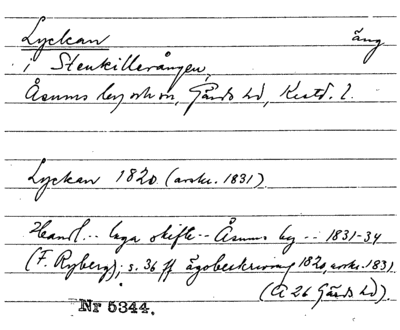 Lyckan äng
i Stenkillevången,
Åsums by och sn, Gärds hd, Krstd. l.
Lyckan 1820 (avskr. 1831).
Handl.-- laga skifte -- Åsums by -- 1831-34
(F. Ryberg); s. 36 ff ägobeskrivning 1820, avskr. 1831
(A 26 Gärds hd).
Nr 5344.